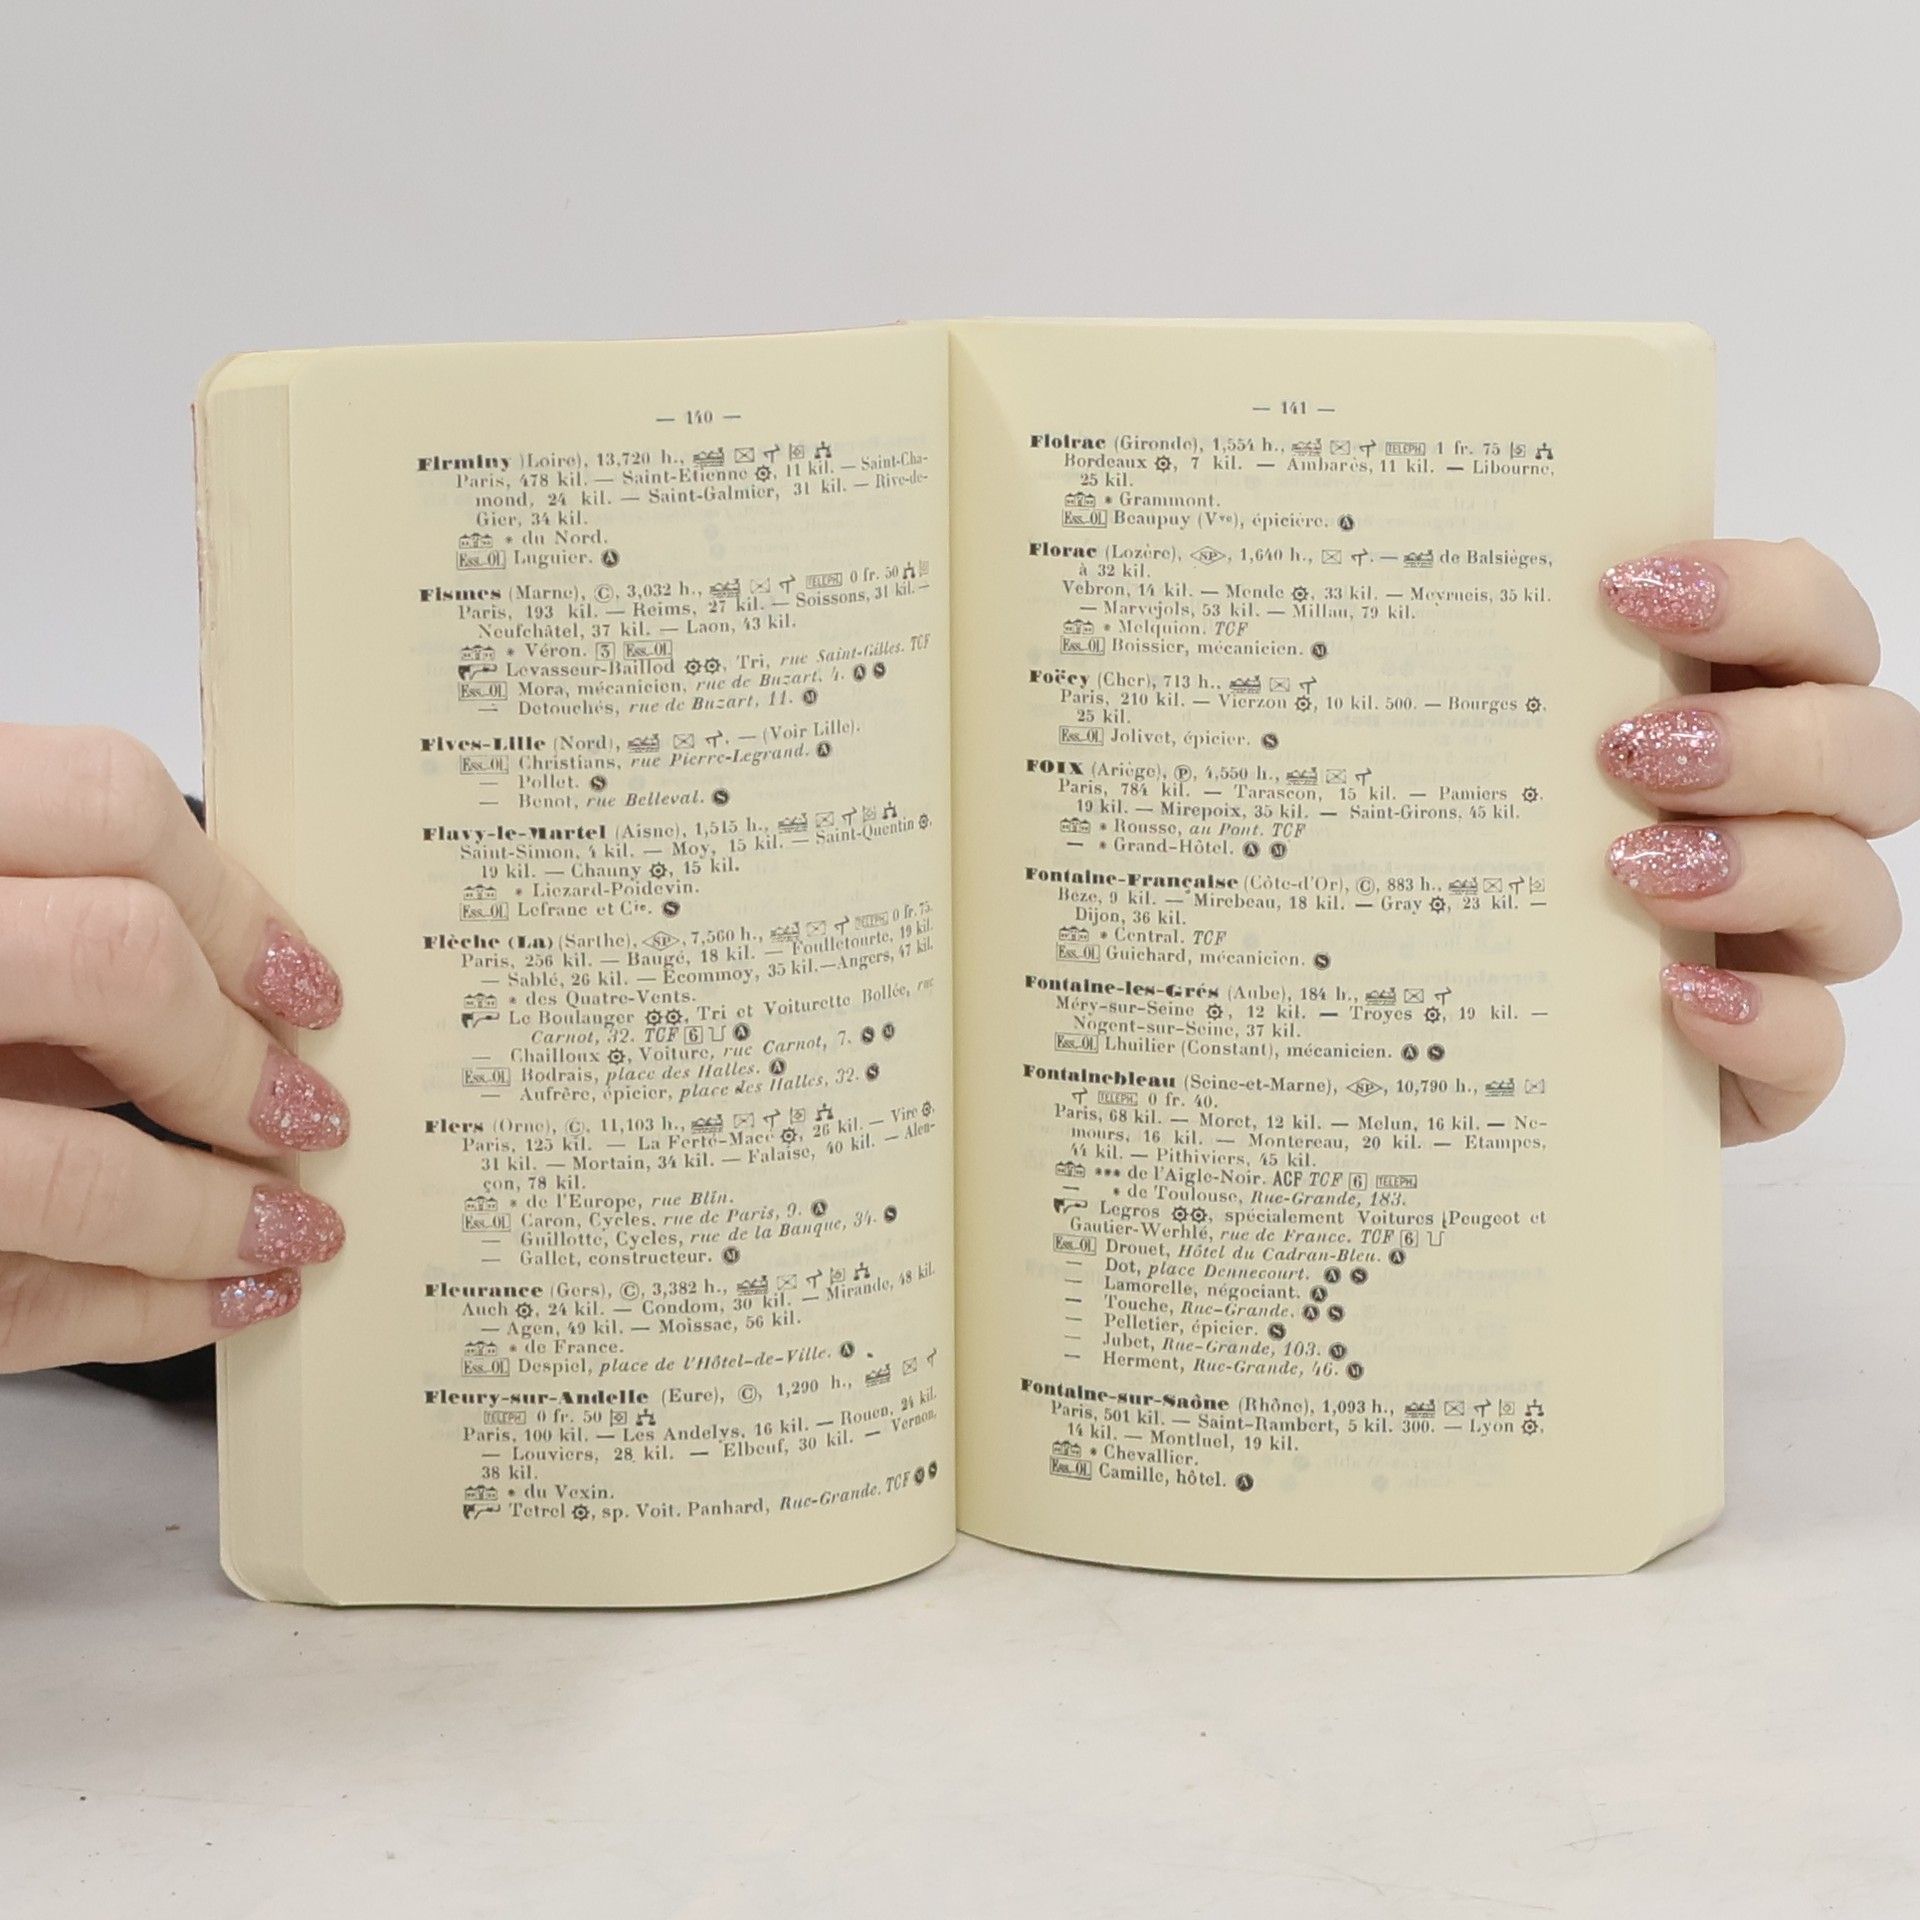 — 140 —
Firminy (Loire), 13,720 h.,
Paris, 478 kil. — Saint-Etienne, 11 kil. — Saint-Cha-
mond, 24 kil. — Saint-Galmier, 31 kil. — Rive-de-
Gier, 34 kil.
* du Nord.
Ess..OL Luguier. A
Fismes (Marne), C, 3,032 h., TELEPH. 0 fr. 50
Paris, 193 kil. — Reims, 27 kil. — Soissons, 31 kil. —
Neufchâtel, 37 kil. — Laon, 43 kil.
* Véron. 3 Ess..OL
Levasseur-Baillod, Tri, rue Saint-Gilles. TCF
Ess..OL Mora, mécanicien, rue de Buzart, 4. A S
— Detouchés, rue de Buzart, 11. M
Fives-Lille (Nord), . — (Voir Lille).
Ess..OL Christians, rue Pierre-Legrand. A
— Pollet. S
— Benot, rue Belleval. S
Flavy-le-Martel (Aisne), 1,515 h.,
Saint-Simon, 4 kil. — Moy, 15 kil. — Saint-Quentin,
19 kil. — Chauny, 15 kil.
* Liezard-Poidevin.
Ess..OL Lefranc et Cie. S
Flèche (La) (Sarthe), SP, 7,560 h., TELEPH. 0 fr. 75.
Paris, 256 kil. — Baugé, 18 kil. — Foulletourte, 19 kil.
— Sablé, 26 kil. — Ecommoy, 35 kil. — Angers, 47 kil.
* des Quatre-Vents.
Le Boulanger, Tri et Voiturette Bollée, rue
Carnot, 32. TCF 6 A
— Chailloux, Voiture, rue Carnot, 7. S M
Ess..OL Bodrais, place des Halles. A
— Aufrère, épicier, place des Halles, 32. S
Flers (Orne), C, 11,103 h.,
Paris, 125 kil. — La Ferté-Macé, 26 kil. — Vire,
31 kil. — Mortain, 34 kil. — Falaise, 40 kil. — Alen-
çon, 78 kil.
* de l'Europe, rue Blin.
Ess..OL Caron, Cycles, rue de Paris, 9. A
— Guillotte, Cycles, rue de la Banque, 34. S
— Gallet, constructeur. M
Fleurance (Gers), C, 3,382 h.,
Auch, 24 kil. — Condom, 30 kil. — Mirande, 48 kil.
— Agen, 49 kil. — Moissac, 56 kil.
* de France.
Ess..OL Despiel, place de l'Hôtel-de-Ville. A
Fleury-sur-Andelle (Eure), C, 1,290 h.,
TELEPH 0 fr. 50
Paris, 100 kil. — Les Andelys, 16 kil. — Rouen, 24 kil.
— Louviers, 28 kil. — Elbeuf, 30 kil. — Vernon,
38 kil.
* du Vexin.
Tetrel, sp. Voit. Panhard, Rue-Grande. TCF M S
— 141 —
Floirac (Gironde), 1,554 h., TELEPH. 1 fr. 75
Bordeaux, 7 kil. — Ambarès, 11 kil. — Libourne,
25 kil.
* Grammont.
Ess..OL Beaupuy (Vve), épicière. A
Florac (Lozère), SP, 1,640 h., . — de Balsièges,
à 32 kil.
Vebron, 14 kil. — Mende, 33 kil. — Meyrueis, 35 kil.
— Marvejols, 53 kil. — Millau, 79 kil.
* Melquion. TCF
Ess..OL Boissier, mécanicien. M
Foëcy (Cher), 713 h.,
Paris, 210 kil. — Vierzon, 10 kil. 500. — Bourges,
25 kil.
Ess..OL Jolivet, épicier. S
FOIX (Ariège), P, 4,550 h.,
Paris, 784 kil. — Tarascon, 15 kil. — Pamiers,
19 kil. — Mirepoix, 35 kil. — Saint-Girons, 45 kil.
* Rousse, au Pont. TCF
— * Grand-Hôtel. A M
Fontaine-Française (Côte-d'Or), C, 883 h.,
Bèze, 9 kil. — Mirebeau, 18 kil. — Gray, 23 kil. —
Dijon, 36 kil.
* Central. TCF
Ess..OL Guichard, mécanicien. S
Fontaine-les-Grés (Aube), 184 h.,
Méry-sur-Seine, 12 kil. — Troyes, 19 kil. —
Nogent-sur-Seine, 37 kil.
Ess..OL Lhuilier (Constant), mécanicien. A S
Fontainebleau (Seine-et-Marne), SP, 10,790 h.,
TELEPH. 0 fr. 40.
Paris, 68 kil. — Moret, 12 kil. — Melun, 16 kil. — Ne-
mours, 16 kil. — Montereau, 20 kil. — Etampes,
44 kil. — Pithiviers, 45 kil.
*** de l'Aigle-Noir. ACF TCF 6 TELEPH.
— * de Toulouse, Rue-Grande, 183.
Legros, spécialement Voitures Peugeot et
Gautier-Werhlé, rue de France. TCF 6
Ess..OL Drouet, Hôtel du Cadran-Bleu. A
— Dot, place Dennecourt. A S
— Lamorelle, négociant. A
— Touche, Rue-Grande. A S
— Pelletier, épicier. S
— Jubet, Rue-Grande, 103. M
— Herment, Rue-Grande, 46. M
Fontaine-sur-Saône (Rhône), 1,093 h.,
Paris, 501 kil. — Saint-Rambert, 5 kil. 300. — Lyon,
14 kil. — Montluel, 19 kil.
* Chevallier.
Ess..OL Camille, hôtel. A